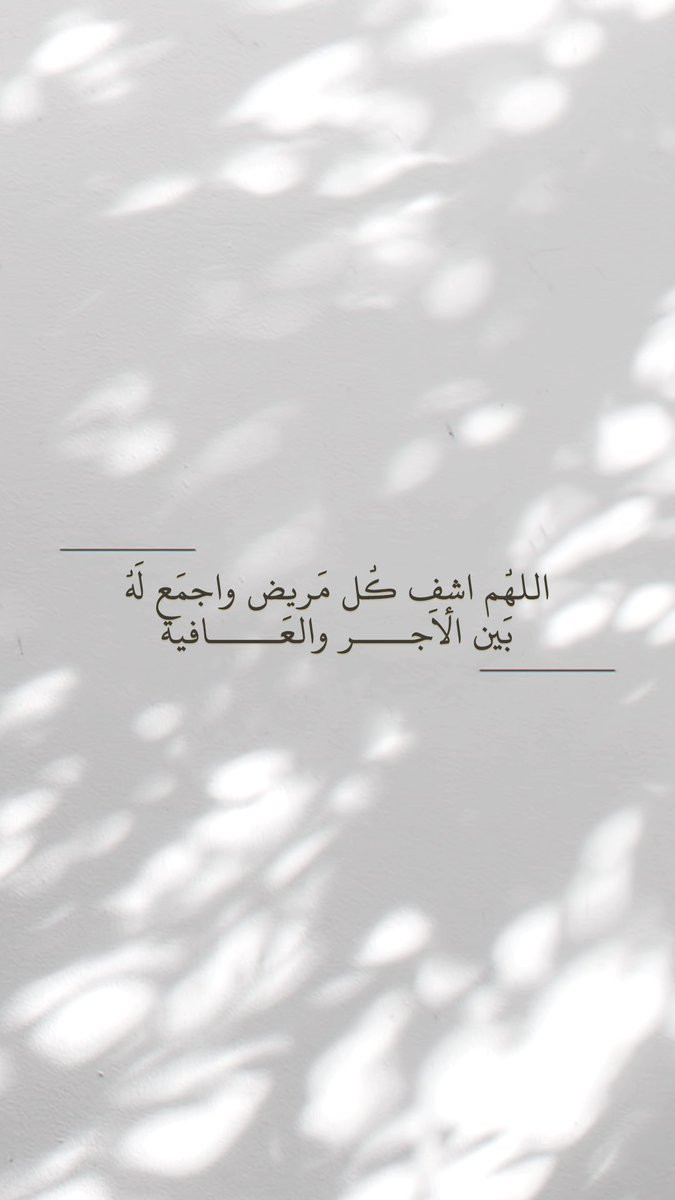 اللهُم اشفِ كُل مَريض واجمَع لَهُ
بَين الْاَجـــــر والعَـــــــافية